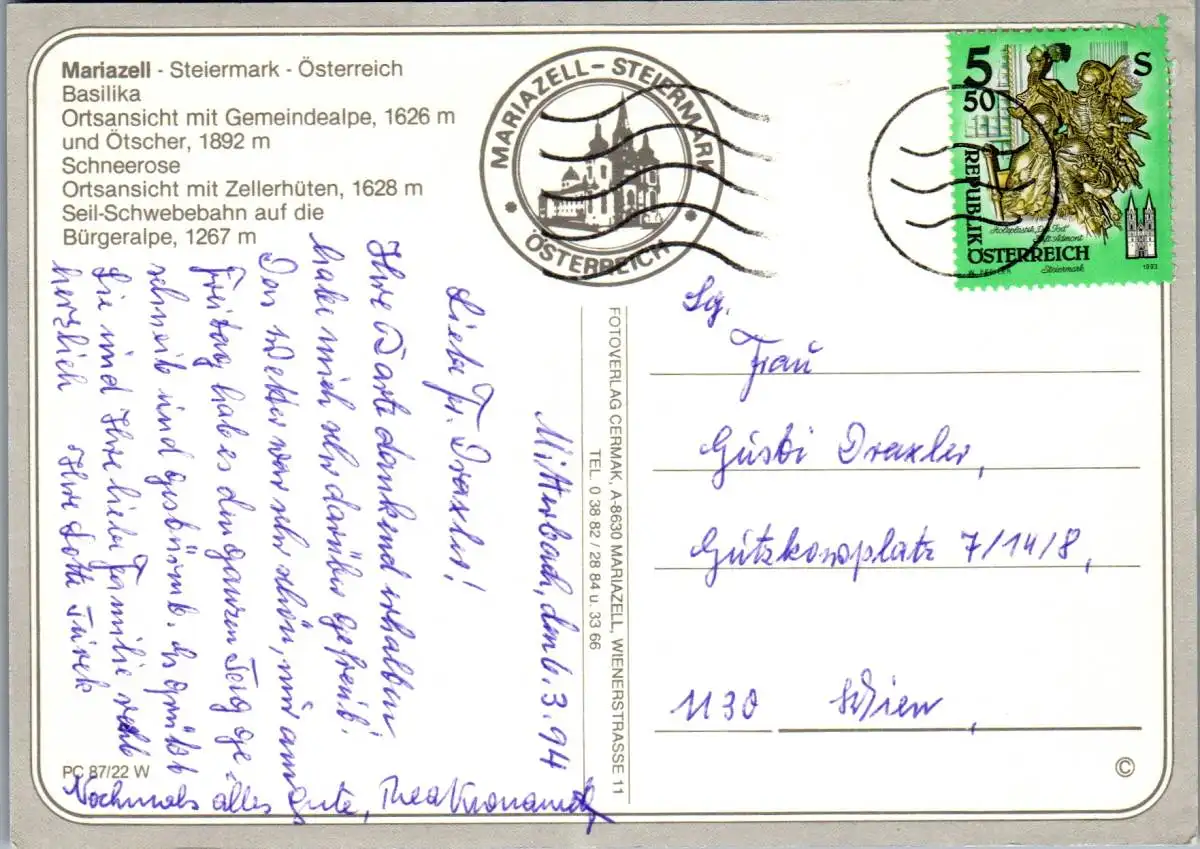 Mariazell - Steiermark - Österreich
Basilika
Ortsansicht mit Gemeindealpe, 1626 m
und Ötscher, 1892 m
Schneerose
Ortsansicht mit Zellerhüten, 1628 m
Seil-Schwebebahn auf die
Bürgeralpe, 1267 m
MARIAZELL - STEIERMARK
ÖSTERREICH
5 S
50
REPUBLIK
Holzplastik „Der Tod“
Stift Admont
ÖSTERREICH
Steiermark
1993
Mitterbach, den 6.3.94
Liebe Fr. Draxler!
Ihre Karte dankend erhalten,
habe mich sehr darüber gefreut.
Das Wetter war sehr schön, nur am
Freitag hat es den ganzen Tag ge-
schneit und gestürmt. Es grüßt
Sie und Ihre liebe Familie recht
herzlich Ihre Lotte Türek
Nochmals alles Gute, Thea
FOTOVERLAG CERMAK, A-8630 MARIAZELL, WIENERSTRASSE 11
TEL. 0 38 82 / 28 84 u. 33 66
Sg.
Frau
Gusti Draxler,
Gutzkowplatz 7/14/8,
1130 Wien,
PC 87/22 W
©